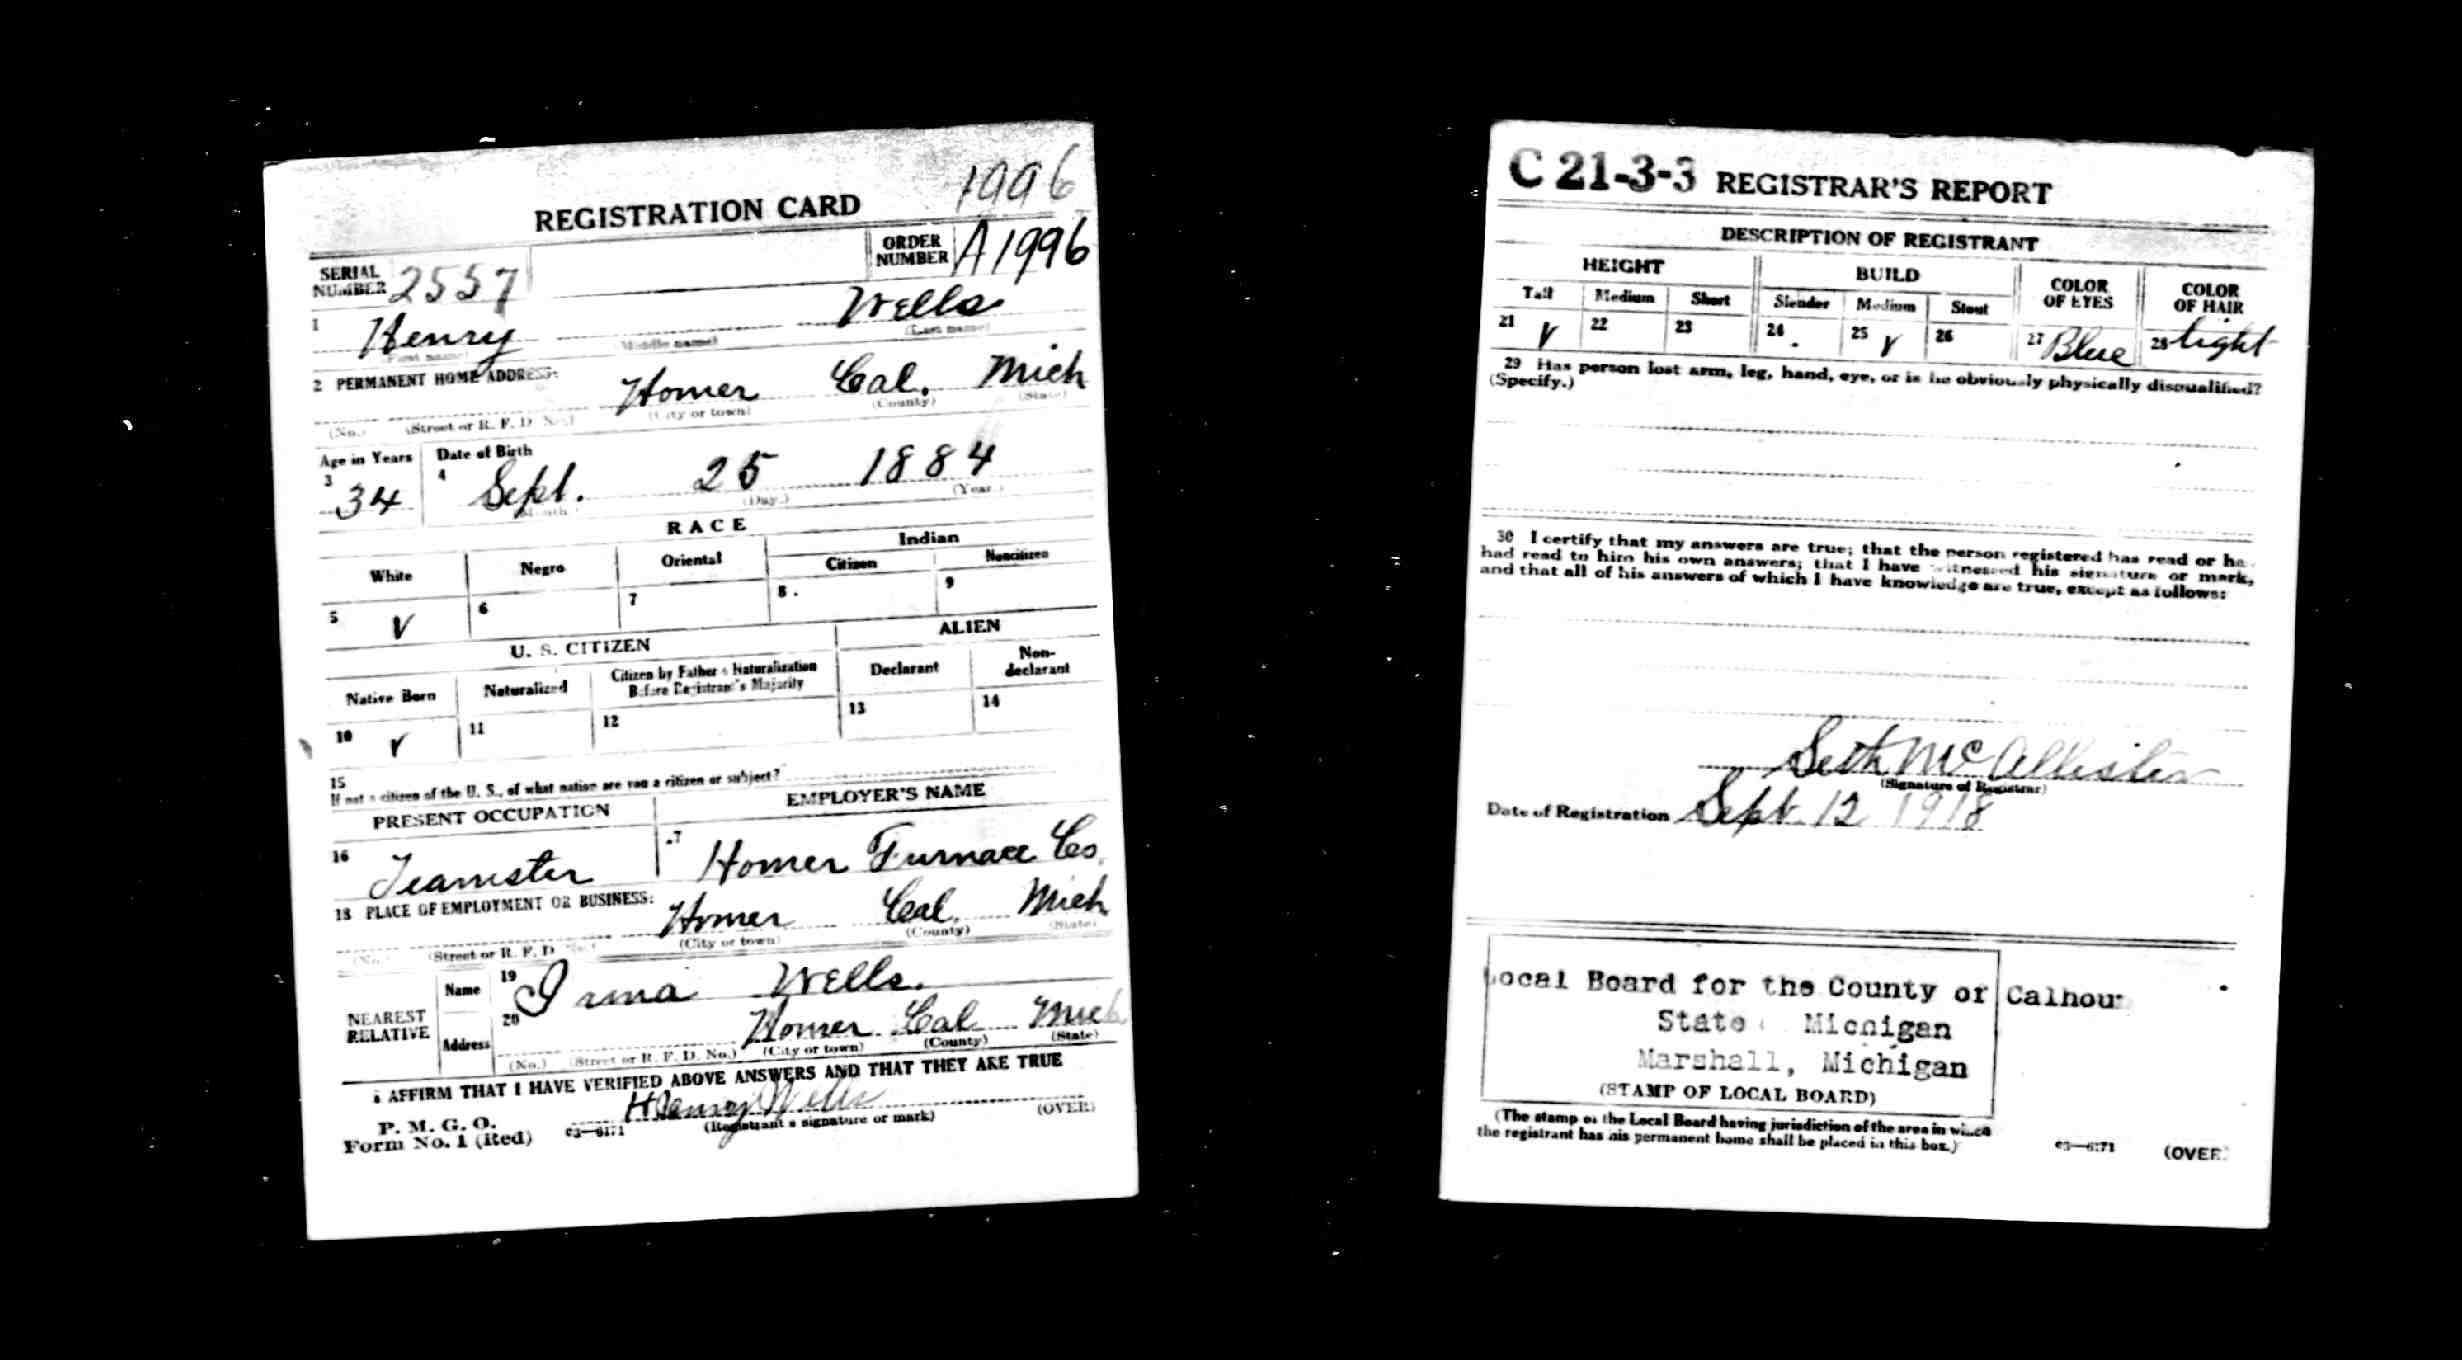 1996
REGISTRATION CARD
SERIAL NUMBER 2557 ORDER NUMBER A1996
1 Henry Wells
(First name) (Middle name) (Last name)
2 PERMANENT HOME ADDRESS:
Homer Cal. Mich
(No.) (Street or R. F. D. No.) (City or town) (County) (State)
Age in Years Date of Birth
3 34 4 Sept. 25 1884
(Month) (Day.) (Year.)
RACE
White Negro Oriental Indian
Citizen Noncitizen
5 V 6 7 8 9
U. S. CITIZEN ALIEN
Native Born Naturalized Citizen by Father's Naturalization Before Registrant's Majority Declarant Non-declarant
10 V 11 12 13 14
15
If not a citizen of the U. S., of what nation are you a citizen or subject?
PRESENT OCCUPATION EMPLOYER'S NAME
16 Teamster 17 Homer Furnace Co.
18 PLACE OF EMPLOYMENT OR BUSINESS:
Homer Cal. Mich
(No.) (Street or R. F. D. No.) (City or town) (County) (State)
NEAREST RELATIVE
Name 19 Irma Wells.
Address 20 Homer Cal Mich
(No.) (Street or R. F. D. No.) (City or town) (County) (State)
I AFFIRM THAT I HAVE VERIFIED ABOVE ANSWERS AND THAT THEY ARE TRUE
P. M. G. O.
Form No. 1 (Red) c3—6171 Henry Wells
(Registrant's signature or mark) (OVER)
C 21-3-3 REGISTRAR'S REPORT
DESCRIPTION OF REGISTRANT
HEIGHT BUILD COLOR OF EYES COLOR OF HAIR
Tall Medium Short Slender Medium Stout
21 V 22 23 24 25 V 26 27 Blue 28 Light
29 Has person lost arm, leg, hand, eye, or is he obviously physically disqualified?
(Specify.)
30 I certify that my answers are true; that the person registered has read or has
had read to him his own answers; that I have witnessed his signature or mark,
and that all of his answers of which I have knowledge are true, except as follows:
Seth McAllister
(Signature of Registrar)
Date of Registration Sept. 12 1918
Local Board for the County of Calhoun
State Michigan
Marshall, Michigan
(STAMP OF LOCAL BOARD)
(The stamp of the Local Board having jurisdiction of the area in which
the registrant has his permanent home shall be placed in this box.)
c3—6171 (OVER)